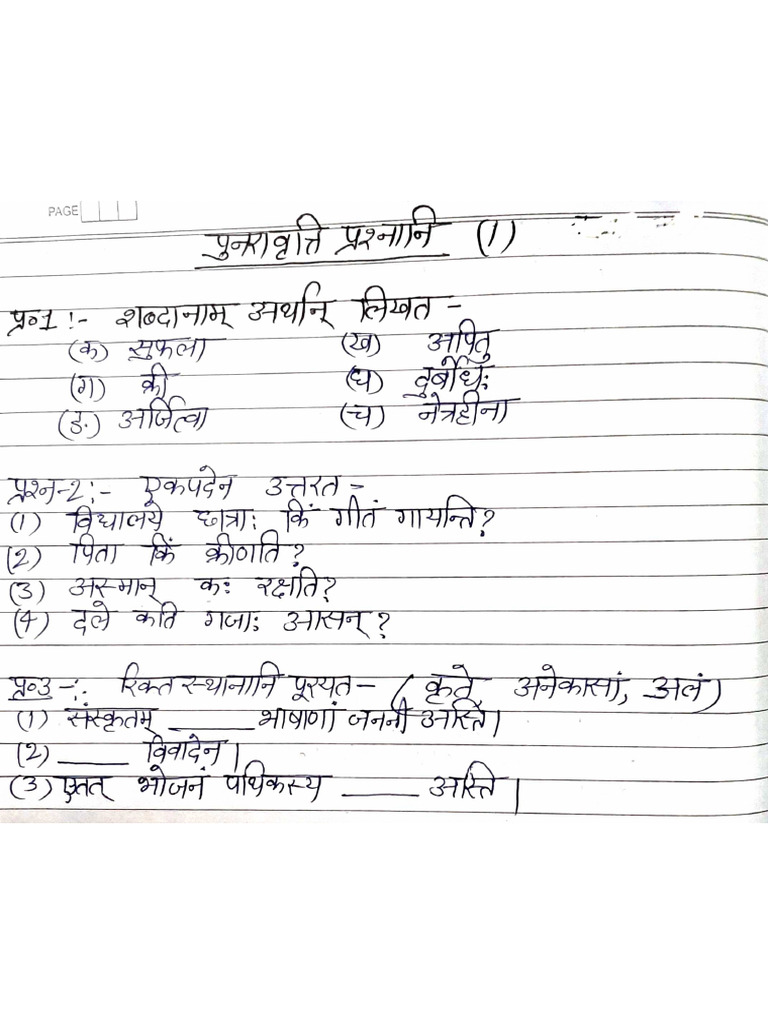 PAGE
पुनरावृत्ति प्रश्नानि (1)
प्र०1 :- शब्दानाम् अर्थान् लिखत -
(क) सुफला (ख) अपितु
(ग) क्री (घ) दुर्बोधः
(ङ) अर्जित्वा (च) नेत्रहीना
प्रश्न-2:- एकपदेन उत्तरत -
(1) विद्यालये छात्राः किं गीतं गायन्ति?
(2) पिता किं क्रीणति?
(3) अस्मान् कः रक्षति?
(4) दले कति गजाः आसन्?
प्र०3 -: रिक्त स्थानानि पूरयत - ( कृते, अनेकासां, अलं)
(1) संस्कृतम् _____ भाषाणां जननी अस्ति।
(2) _____ विवादेन।
(3) एतत् भोजनं पथिकस्य _____ अस्ति।